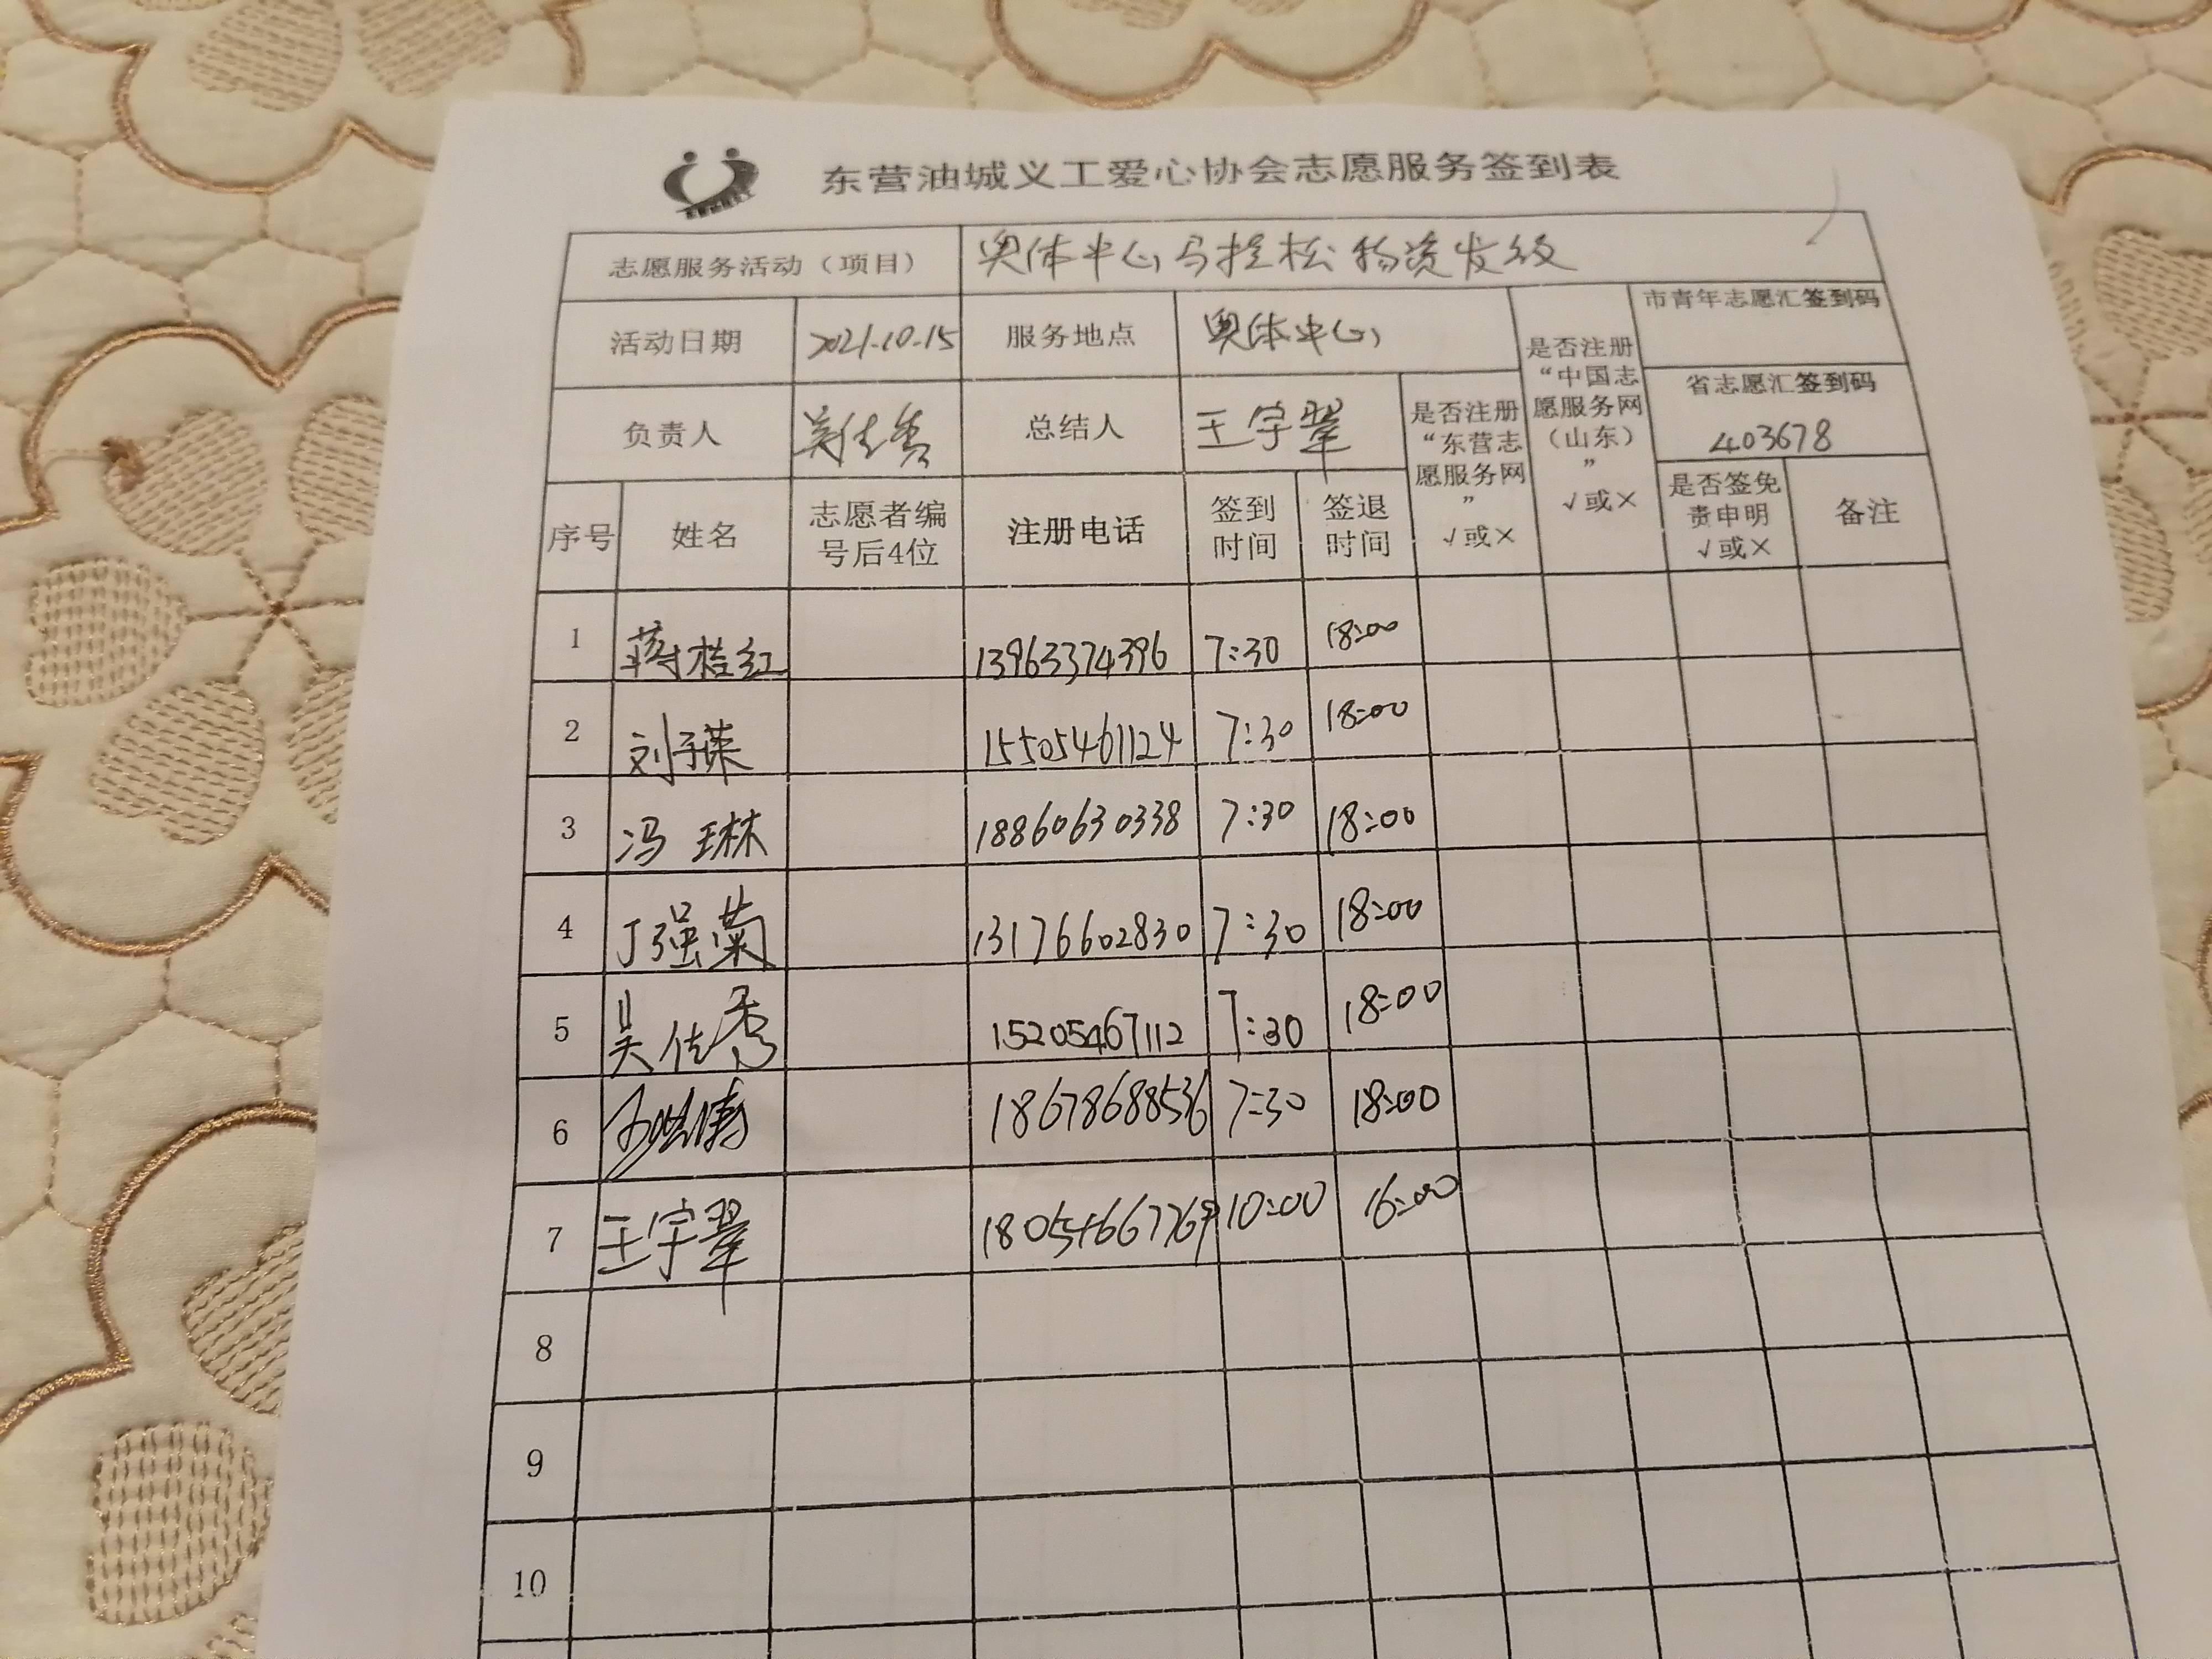 东营油城义工爱心协会志愿服务签到表
志愿服务活动（项目） 奥体中心马拉松物资发放
活动日期 2021.10.15 服务地点 奥体中心
市青年志愿汇签到码
负责人 吴佳秀 总结人 王宇翠
省志愿汇签到码
403678
序号 姓名 志愿者编号后4位 注册电话 签到时间 签退时间 是否注册“东营志愿服务网” √或× 是否注册“中国志愿服务网（山东）” √或× 是否签免责申明 √或× 备注
1 蒋桂红 13963374396 7:30 18:00
2 刘子瑛 15505461124 7:30 18:00
3 冯琳 18860630338 7:30 18:00
4 丁强菊 13176602830 7:30 18:00
5 吴佳秀 15205467112 7:30 18:00
6 18678688536 7:30 18:00
7 王宇翠 10:00 16:00
8
9
10